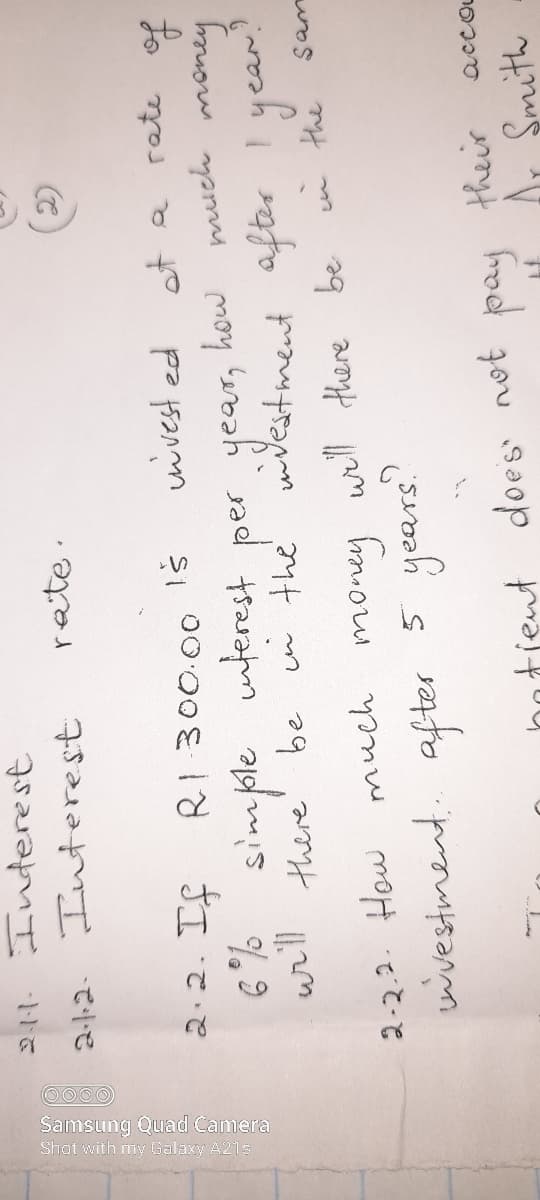 2.1.1. Interest
2.1.2. Interest rate. (2)
2.2. If R1300.00 is invested at a rate of
6% simple interest per year, how much money
will there be in the investment after 1 year?
2.2.2. How much money will there be in the sam
investment. after 5 years?
does not pay their accou
Smith
Samsung Quad Camera
Shot with my Galaxy A21s